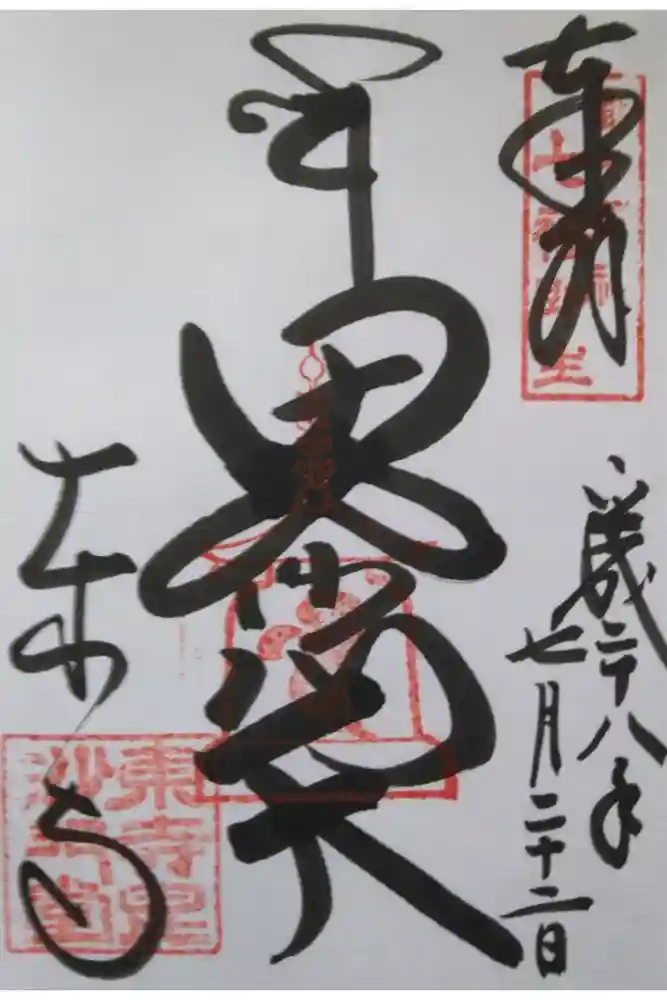 奉拝
平成二十八年
七月二十二日
毘沙門天
東寺
東寺毘
沙門堂